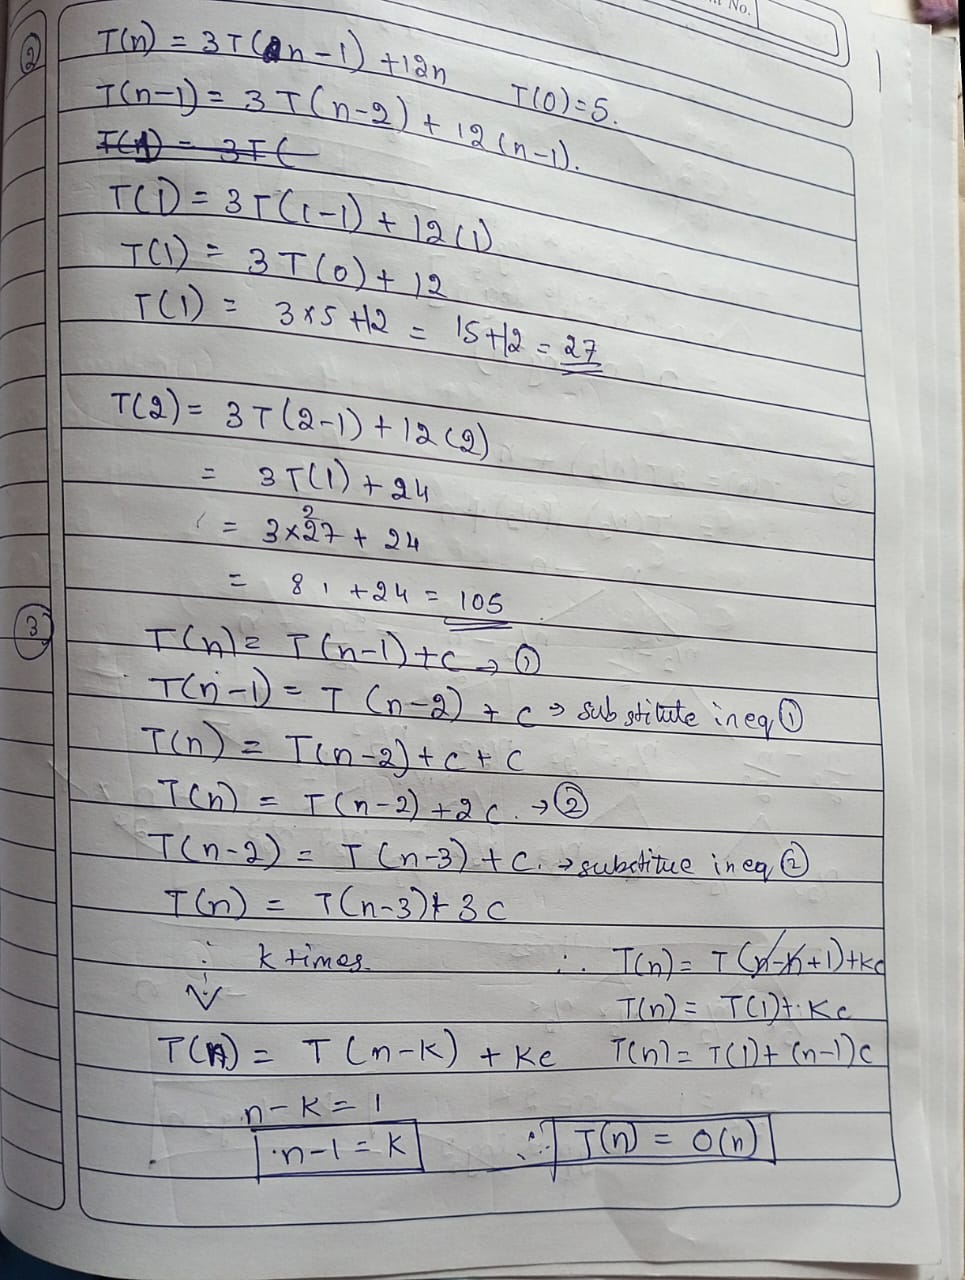 No.
② T(n) = 3T(n-1) +12n T(0)=5.
T(n-1) = 3T(n-2) + 12(n-1).
T(1) = 3T(
T(1) = 3T(1-1) + 12(1)
T(1) = 3T(0) + 12
T(1) = 3×5 +12 = 15+12 = 27
T(2) = 3T(2-1) + 12(2)
= 3T(1) + 24
2
= 3×27 + 24
= 81 +24 = 105
③ T(n) = T(n-1) + c → ①
T(n-1) = T(n-2) + c → substitute in eq ①
T(n) = T(n-2) + c + c
T(n) = T(n-2) + 2c. → ②
T(n-2) = T(n-3) + c. → substitue in eq ②
T(n) = T(n-3) + 3c
k times. ∴ T(n) = T(n-n+1)+kc
T(n) = T(1) + kc
T(n) = T(n-k) + kc T(n) = T(1) + (n-1)c
n-k = 1
n-1 = k ∴ T(n) = O(n)